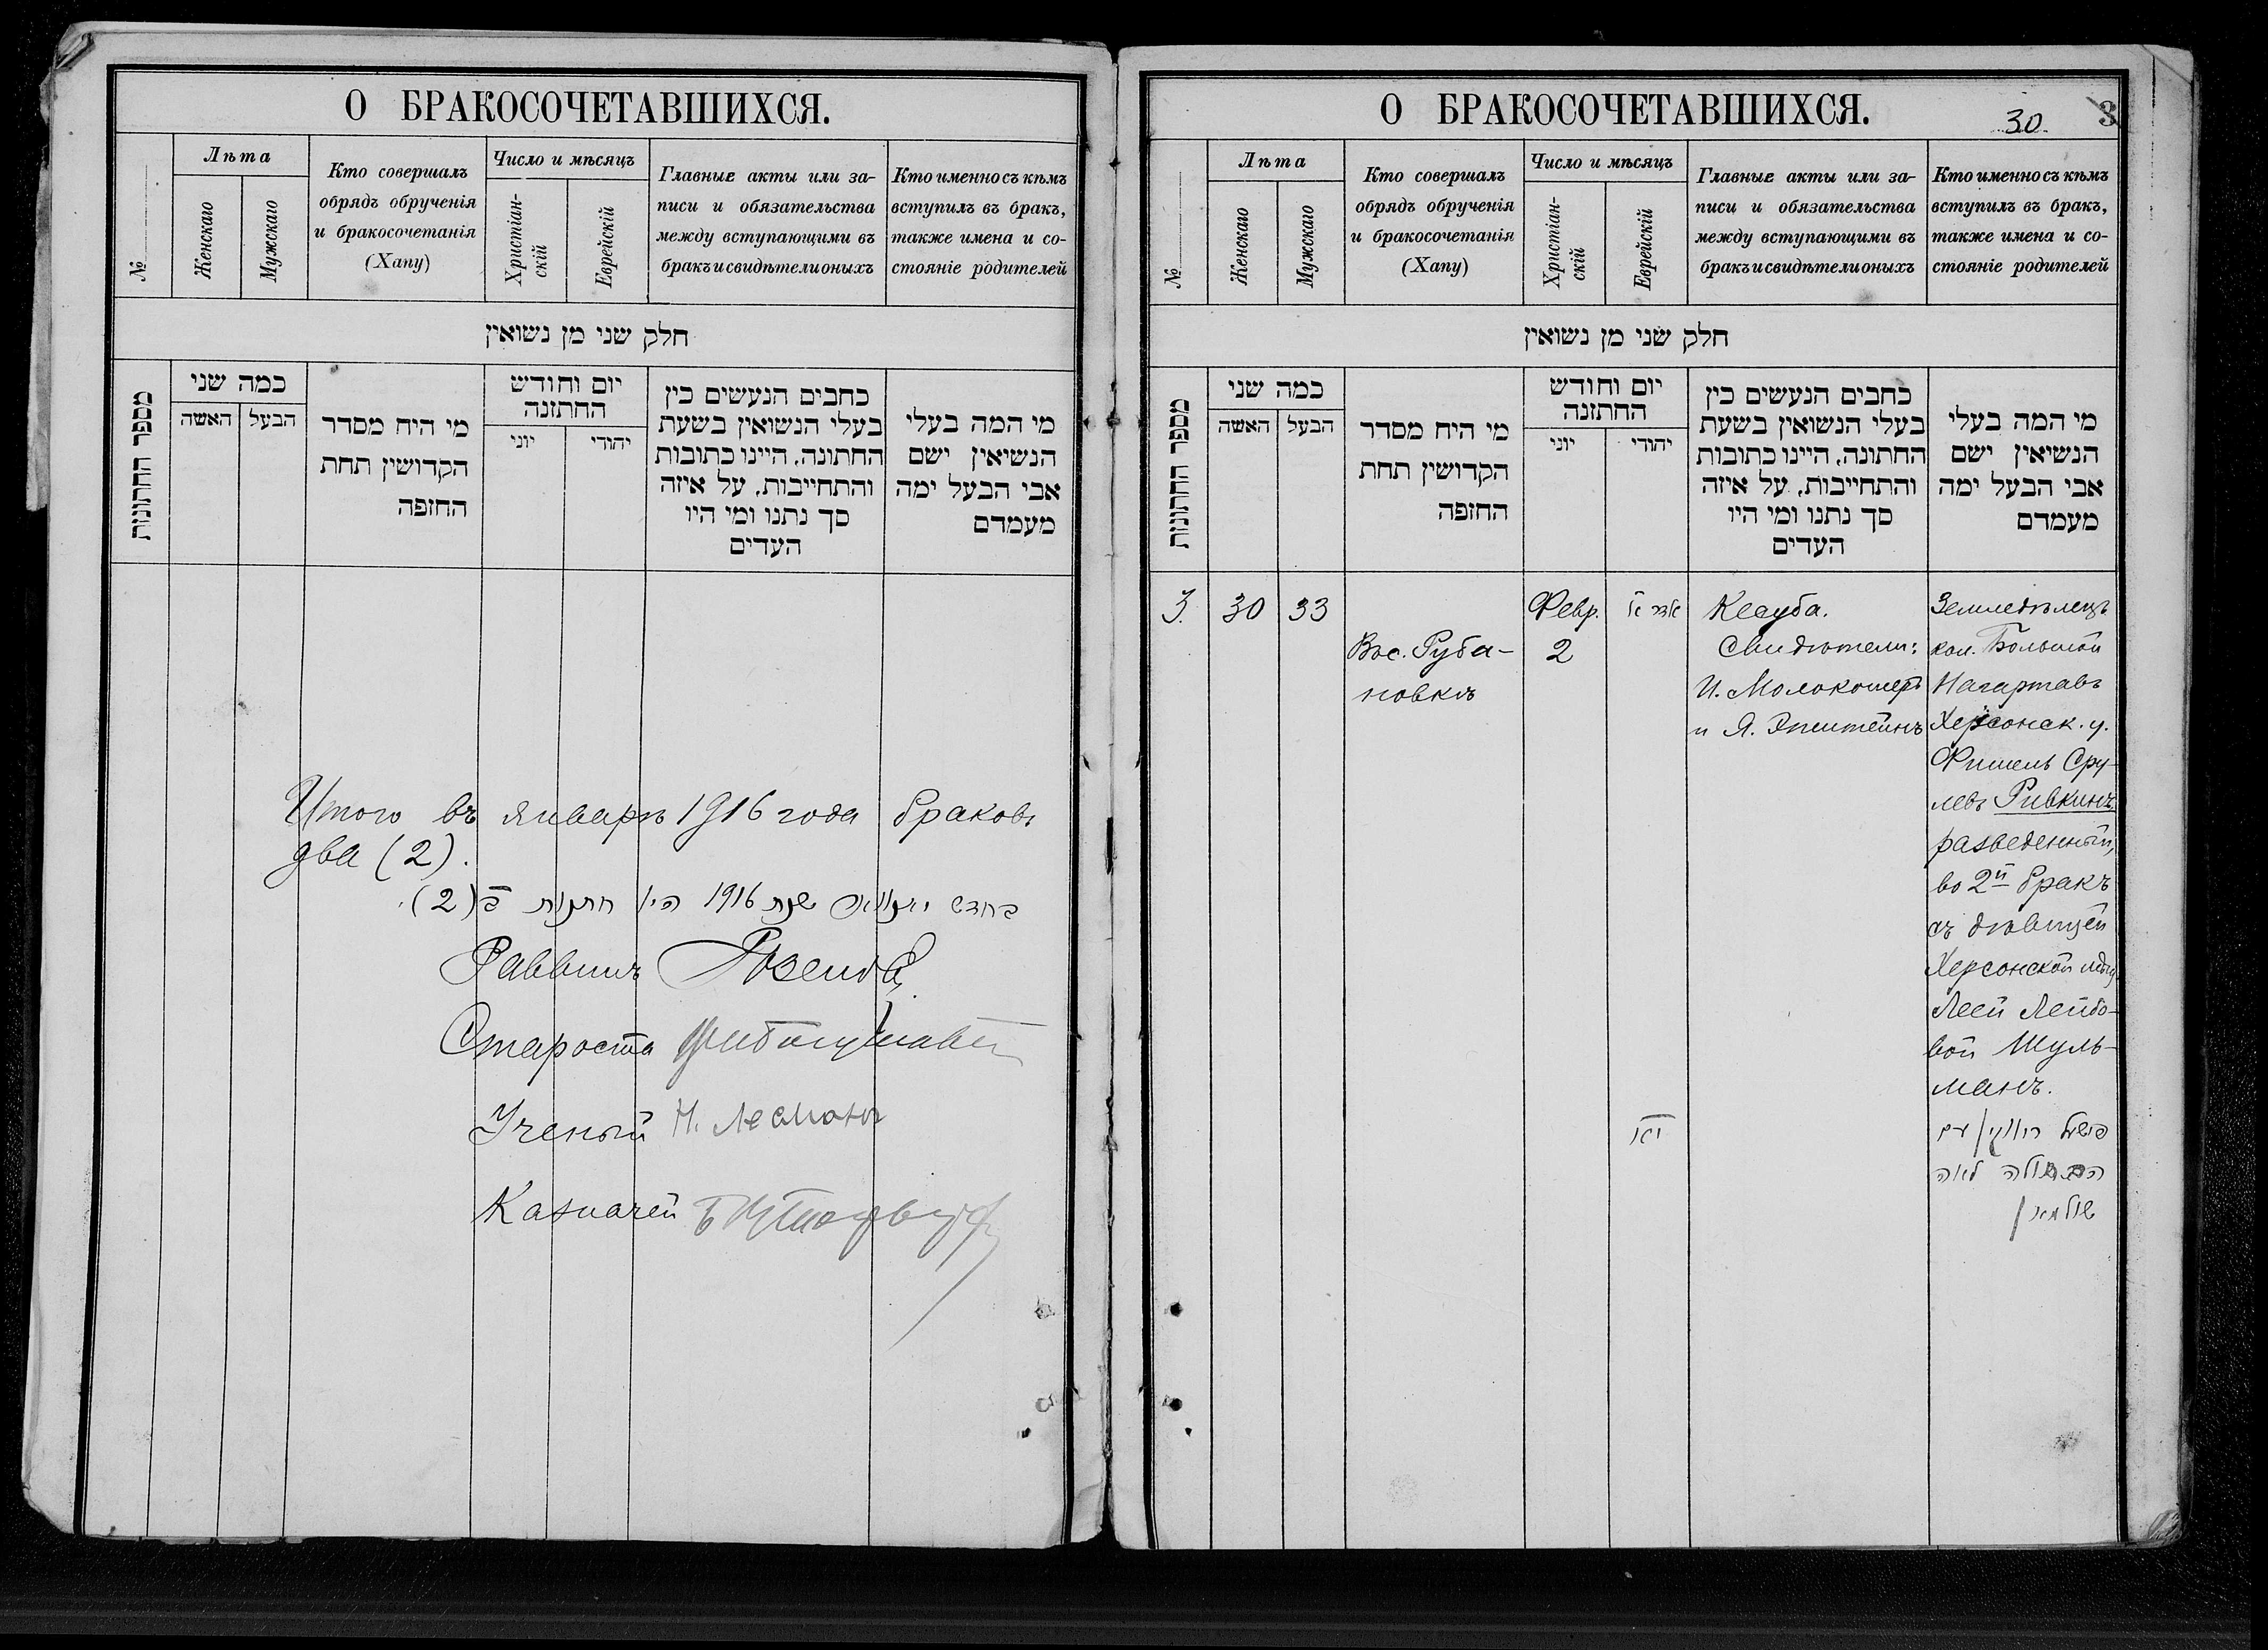 О БРАКОСОЧЕТАВШИХСЯ.
№
Лѣта
Женскаго
Мужскаго
Кто совершалъ
обрядъ обрученія
и бракосочетанія
(Хапу)
Число и мѣсяцъ
Христіан-
скій
Еврейскій
Главные акты или за-
писи и обязательства
между вступающими въ
бракъ и свидѣтели оныхъ
Кто именно съ кѣмъ
вступилъ въ бракъ,
также имена и со-
стояніе родителей
חלק שני מן נשואין
מספר החתונות
כמה שני
האשה
הבעל
מי היח מסדר
הקדושין תחת
החזפה
יום וחודש
החתזנה
יוני
יהודי
כחבים הנעשים כין
בעלי הנשואין בשעת
החתונה, היינו כתובות
והתחייבות, על איזה
סך נתנו ומי היו
העדים
מי המה בעלי
הנשיאין ישם
אבי הבעל ימה
מעמדם
Итого въ январѣ 1916 года браковъ
два (2).
בחדש יאנוואר שנת 1916 היו חתונות ב (2).
Раввинъ
Староста
Ученый Н. Лесманъ
Казначей
О БРАКОСОЧЕТАВШИХСЯ.
30
3
№
Лѣта
Женскаго
Мужскаго
Кто совершалъ
обрядъ обрученія
и бракосочетанія
(Хапу)
Число и мѣсяцъ
Христіан-
скій
Еврейскій
Главные акты или за-
писи и обязательства
между вступающими въ
бракъ и свидѣтели оныхъ
Кто именно съ кѣмъ
вступилъ въ бракъ,
также имена и со-
стояніе родителей
חלק שני מן נשואין
מספר החתונות
כמה שני
האשה
הבעל
מי היח מסדר
הקדושין תחת
החזפה
יום וחודש
החתזנה
יוני
יהודי
כחבים הנעשים כין
בעלי הנשואין בשעת
החתונה, היינו כתובות
והתחייבות, על איזה
סך נתנו ומי היו
העדים
מי המה בעלי
הנשיאין ישם
אבי הבעל ימה
מעמדם
3.
30
33
Вос. Руба-
новкѣ
Февр.
2
אדר א
Ксуба.
Свидѣтели:
И. Молокомеръ
и Я. Эпштейнъ
Земледѣлецъ
кол. Большой
Нагартавъ
Херсонск. у.
Фишель Сру-
левъ Ривкинъ,
разведенный,
во 2й бракъ
съ дѣвицей
Херсонской
Леей Лейбо-
вой Шуль-
манъ.
פישל ריווקין עם
הבתולה לאה
שולמאן